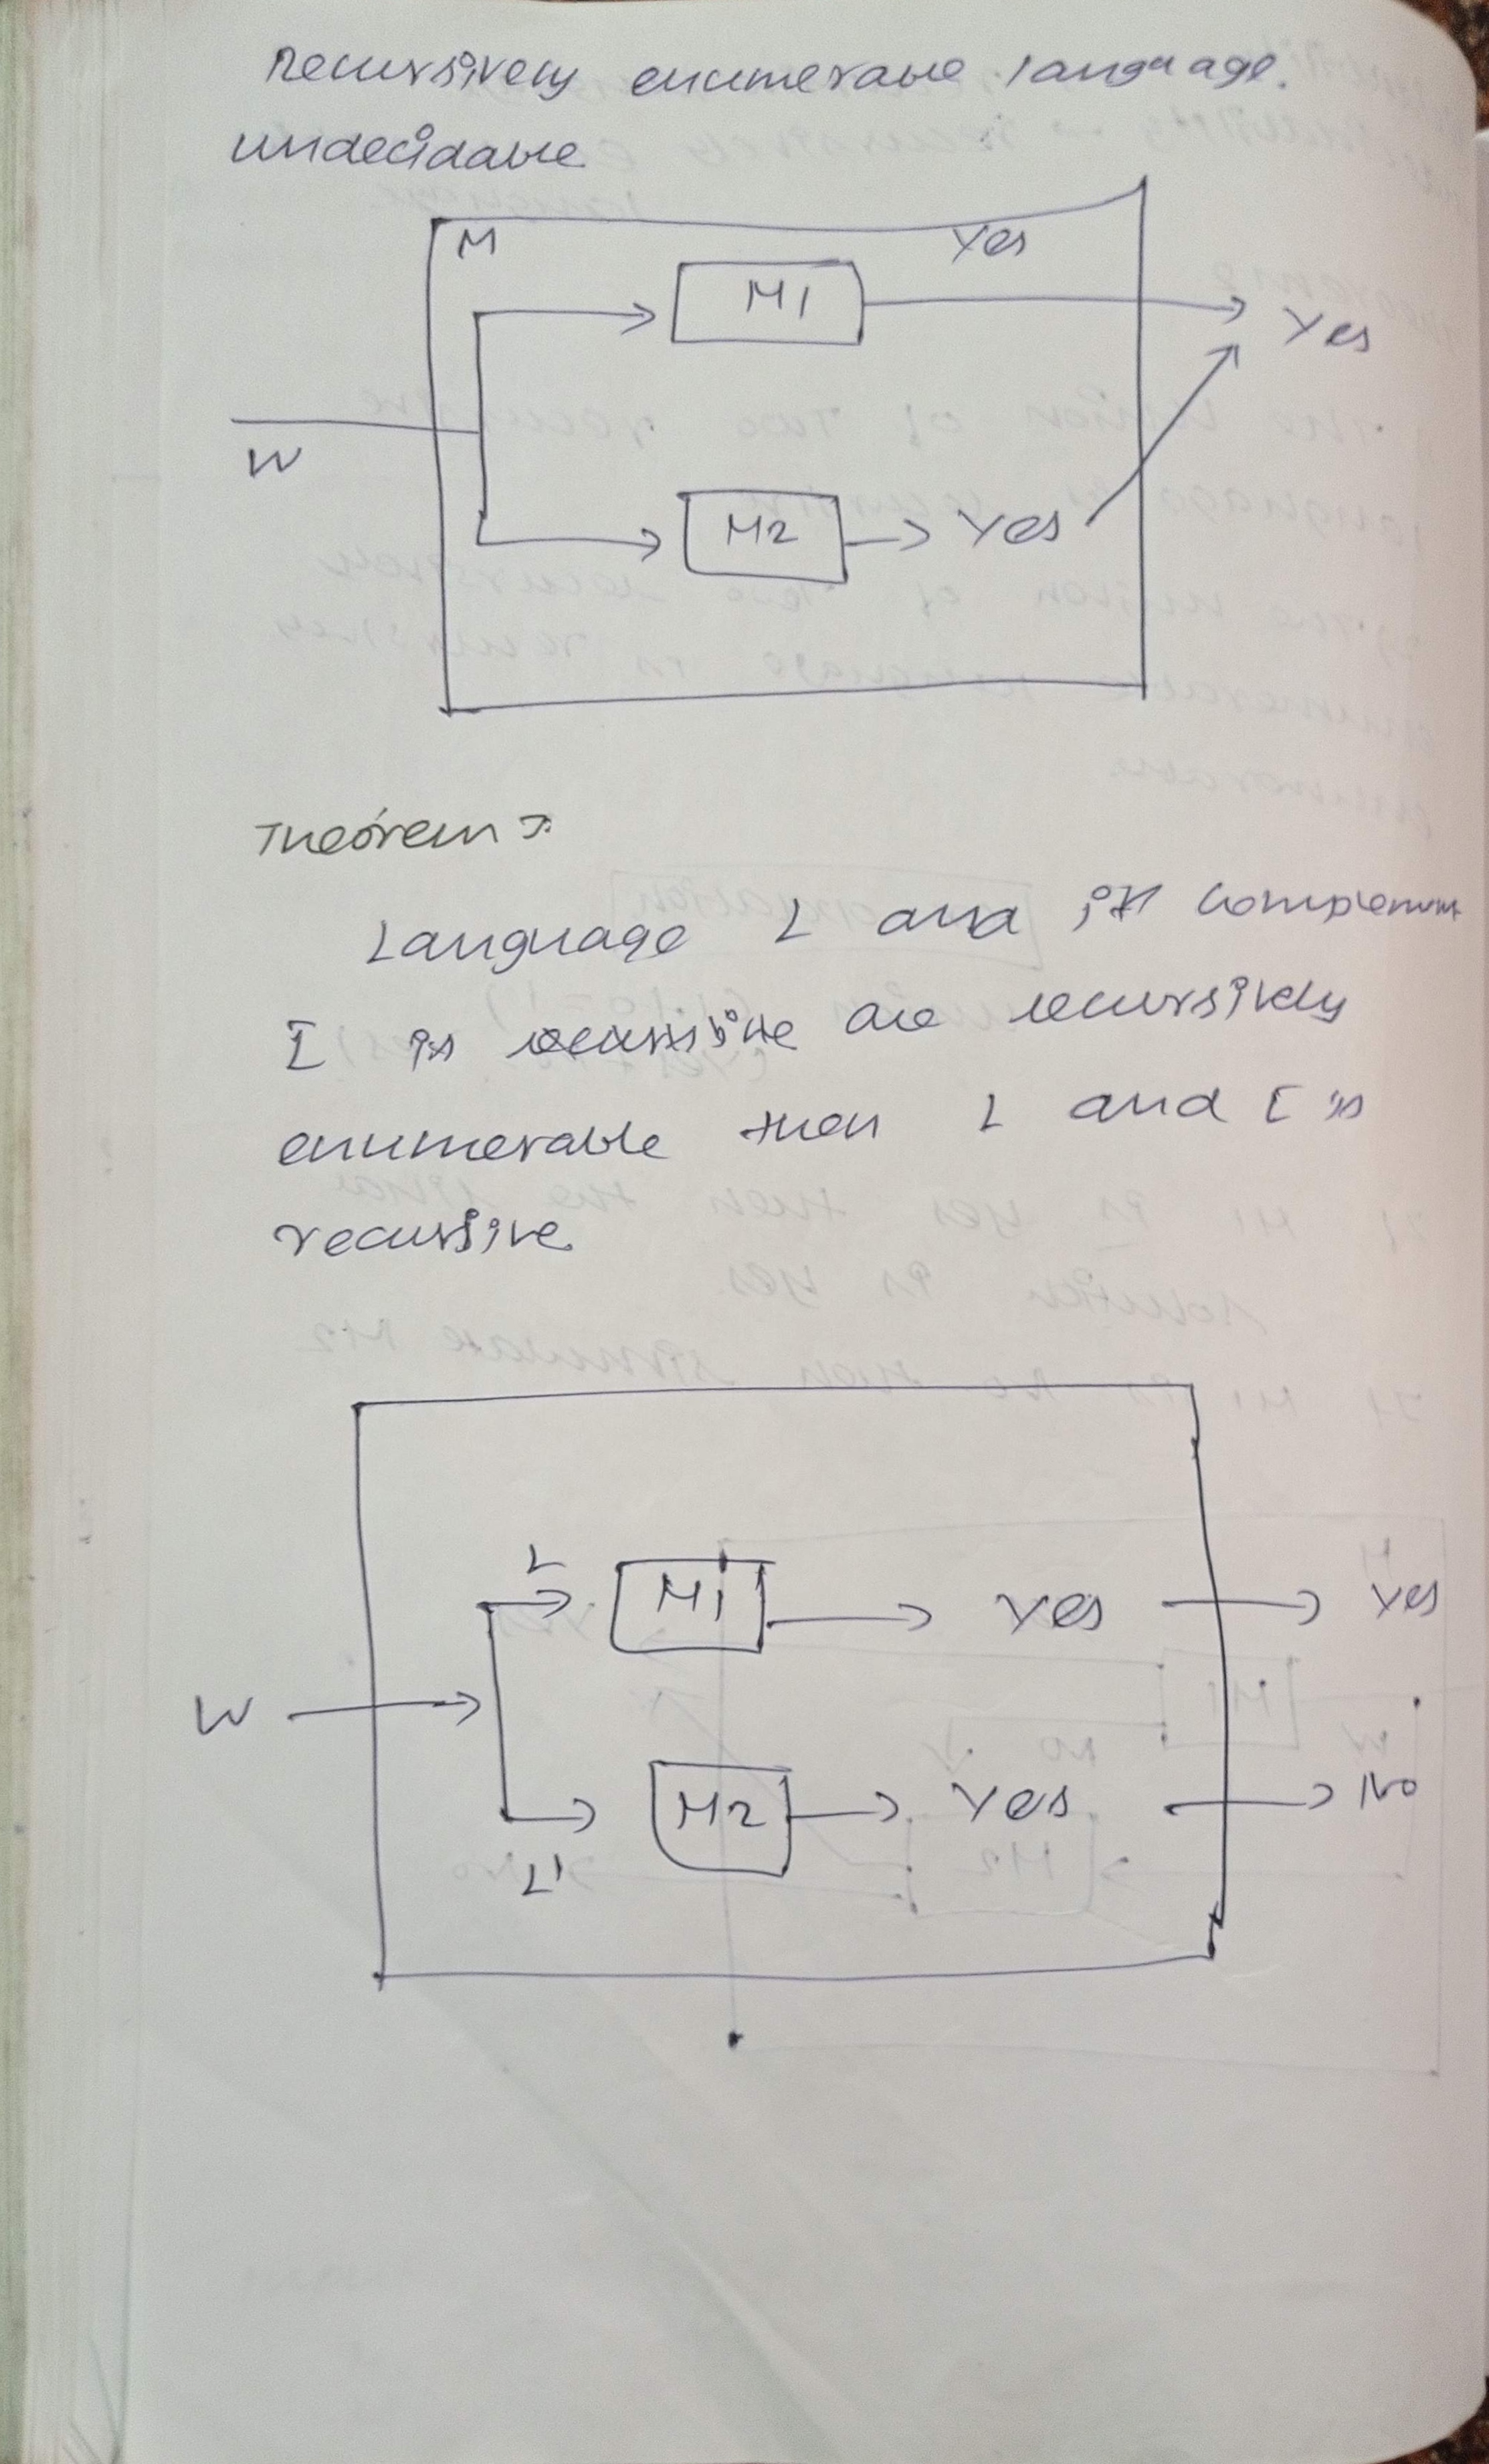 Recursively enumerable language.
undecidable
M
Yes
M1
Yes
W
M2
Yes
Theorem
Language L and its complement
L̅ is are recursively
enumerable then L and L̅ is
recursive
L
M1
Yes
Yes
W
M2
Yes
No
L'